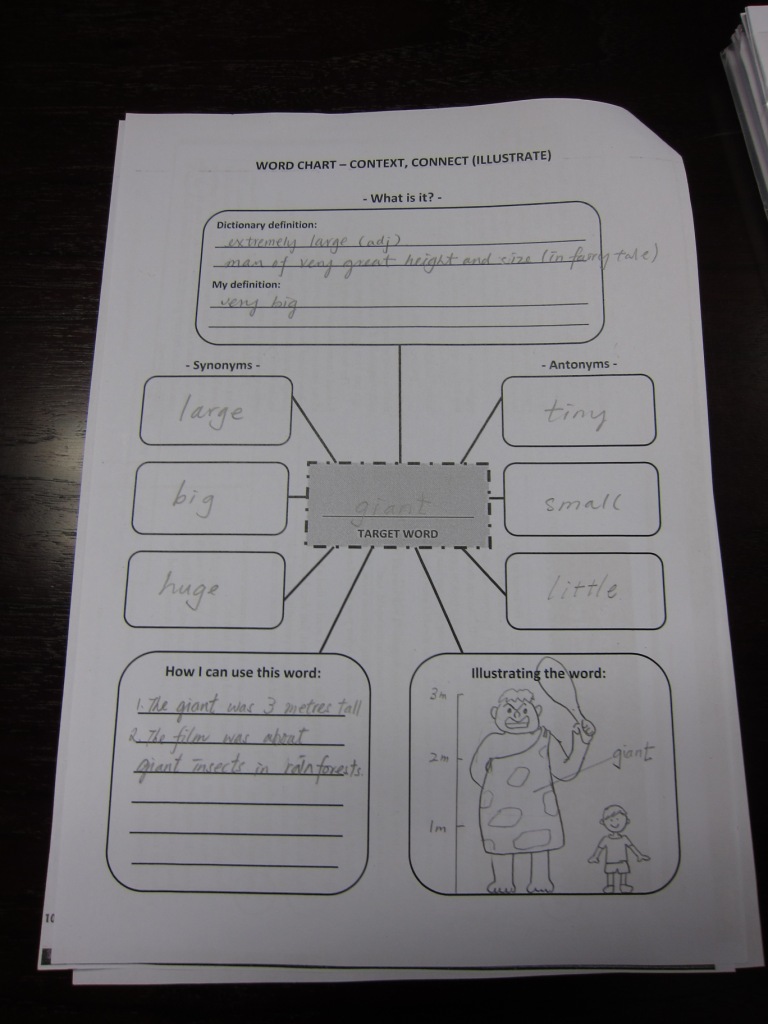 WORD CHART – CONTEXT, CONNECT (ILLUSTRATE)
- What is it? -
Dictionary definition:
extremely large (adj)
man of very great height and size (in fairy tale)
My definition:
very big
- Synonyms -
large
big
huge
- Antonyms -
tiny
small
little
giant
TARGET WORD
How I can use this word:
1. The giant was 3 metres tall
2. The film was about
giant insects in rainforests.
Illustrating the word:
3m
2m
1m
giant